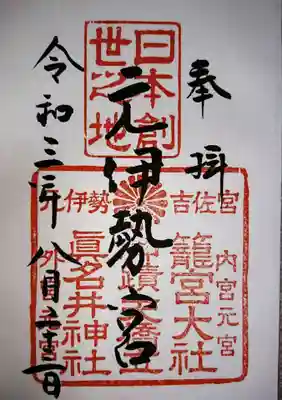 奉拝
日本創
世之地
元伊勢宮
伊勢 吉佐宮
内宮元宮
籠宮大社
眞名井神社
令和三年八月